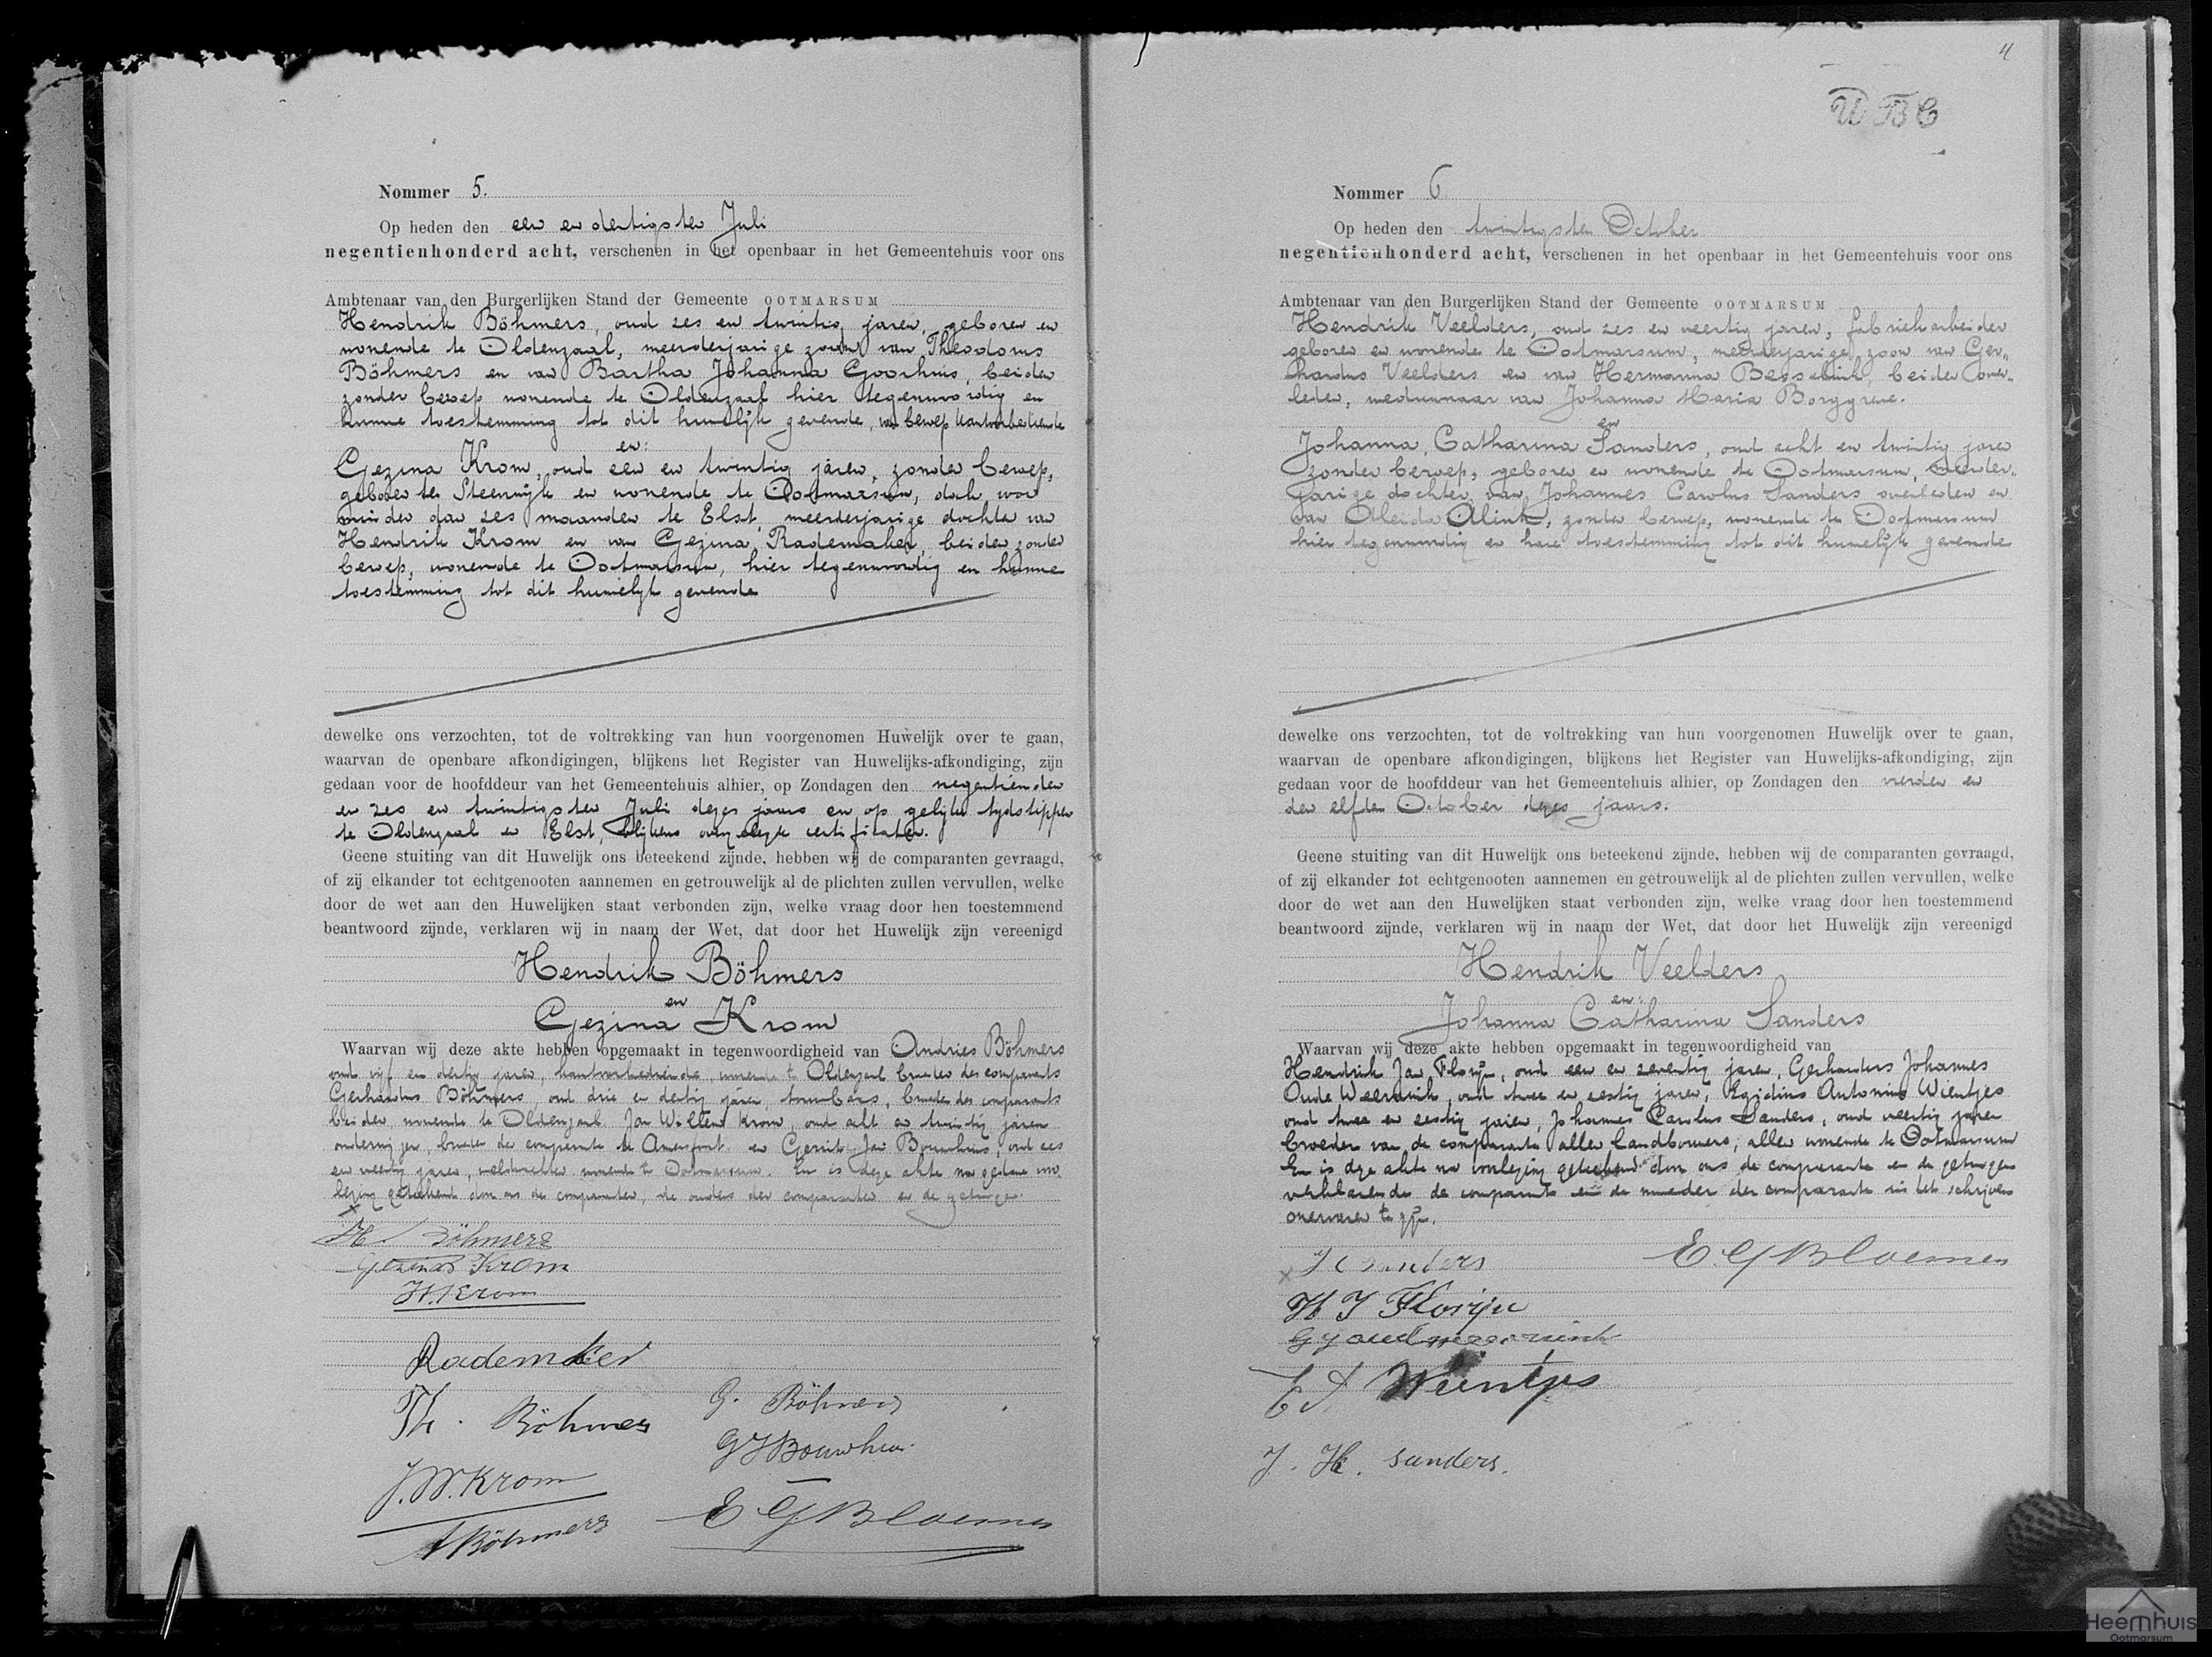 Nommer 5.
Op heden den een en dertigsten Juli
negentienhonderd acht, verschenen in het openbaar in het Gemeentehuis voor ons
Ambtenaar van den Burgerlijken Stand der Gemeente OOTMARSUM
Hendrik Böhmers, oud zes en twintig jaren, geboren en
wonende te Oldenzaal, meerderjarige zoon van Theodorus
Böhmers en van Bartha Johanna Goorhuis, beiden
zonder beroep wonende te Oldenzaal hier tegenwoordig en
hunne toestemming tot dit huwelijk gevende, van beroep kantoorbediende
en:
Gezina Krom, oud een en twintig jaren, zonder beroep,
geboren te Steenwijk en wonende te Ootmarsum, doch voor
minder dan zes maanden te Elst, meerderjarige dochter van
Hendrik Krom en van Gezina Rademaker, beiden zonder
beroep, wonende te Ootmarsum, hier tegenwoordig en hunne
toestemming tot dit huwelijk gevende
dewelke ons verzochten, tot de voltrekking van hun voorgenomen Huwelijk over te gaan,
waarvan de openbare afkondigingen, blijkens het Register van Huwelijks-afkondiging, zijn
gedaan voor de hoofddeur van het Gemeentehuis alhier, op Zondagen den negentienden
en zes en twintigsten Juli dezes jaars en op gelijke tijdstippen
te Oldenzaal en Elst, blijkens overgelegde certificaten.
Geene stuiting van dit Huwelijk ons beteekend zijnde, hebben wij de comparanten gevraagd,
of zij elkander tot echtgenooten aannemen en getrouwelijk al de plichten zullen vervullen, welke
door de wet aan den Huwelijken staat verbonden zijn, welke vraag door hen toestemmend
beantwoord zijnde, verklaren wij in naam der Wet, dat door het Huwelijk zijn vereenigd
Hendrik Böhmers
en
Gezina Krom
Waarvan wij deze akte hebben opgemaakt in tegenwoordigheid van Andries Böhmers
oud vijf en dertig jaren, kantoorbediende, wonende te Oldenzaal broeder des comparants
Gerhardus Böhmers, oud drie en dertig jaren, broeder des comparants
beiden wonende te Oldenzaal Jan Willem Krom, oud acht en twintig jaren
onderwijzer, broeder der comparante te Amersfoort en Gerrit Jan Bouwhuis, oud zes
en veertig jaren, veldwachter wonende te Ootmarsum. En is deze akte na gedane voor
lezing geteekend door ons de comparanten, de ouders der comparanten en de getuigen.
H Böhmers
Gezina Krom
H. Krom
Rademaker
Th. Böhmers
G. Böhmers
GJBouwhuis
J. W. Krom
A Böhmers
E G Bloemen
4
W B C
Nommer 6
Op heden den twintigsten October
negentienhonderd acht, verschenen in het openbaar in het Gemeentehuis voor ons
Ambtenaar van den Burgerlijken Stand der Gemeente OOTMARSUM
Hendrik Veelders, oud zes en veertig jaren, fabriekarbeider
geboren en wonende te Ootmarsum, meerderjarige zoon van Ger„
hardus Veelders en van Hermanna Besselink, beiden over„
leden, weduwnaar van Johanna Maria Borggreve.
en
Johanna, Catharina Sanders, oud acht en twintig jaren
zonder beroep, geboren en wonende te Ootmarsum, meerder„
jarige dochter van Johannes Carolus Sanders overleden en
van Aleida Alink, zonder beroep, wonende te Ootmarsum
hier tegenwoordig en hare toestemming tot dit huwelijk gevende
dewelke ons verzochten, tot de voltrekking van hun voorgenomen Huwelijk over te gaan,
waarvan de openbare afkondigingen, blijkens het Register van Huwelijks-afkondiging, zijn
gedaan voor de hoofddeur van het Gemeentehuis alhier, op Zondagen den vierden en
den elfden October dezes jaars.
Geene stuiting van dit Huwelijk ons beteekend zijnde, hebben wij de comparanten gevraagd,
of zij elkander tot echtgenooten aannemen en getrouwelijk al de plichten zullen vervullen, welke
door de wet aan den Huwelijken staat verbonden zijn, welke vraag door hen toestemmend
beantwoord zijnde, verklaren wij in naam der Wet, dat door het Huwelijk zijn vereenigd
Hendrik Veelders
en:
Johanna Catharina Sanders
Waarvan wij deze akte hebben opgemaakt in tegenwoordigheid van
Hendrik Jan Florijn, oud een en zeventig jaren, Gerhardus Johannes
Oude Weernink, oud twee en zestig jaren, Egidius Antonius Wientjes
oud twee en zestig jaren, Johannes Carolus Sanders, oud veertig jaren
broeder van de comparante allen landbouwers, allen wonende te Ootmarsum
En is deze akte na voorlezing geteekend door ons de comparante en de getuigen
verklarende de comparant en de moeder der comparante in het schrijven
onervaren te zijn.
J C Sanders
E. G Bloemen
H J Florijn
G J oude weernink
E A Wientjes
J. H. Sanders.
Heemhuis
Ootmarsum